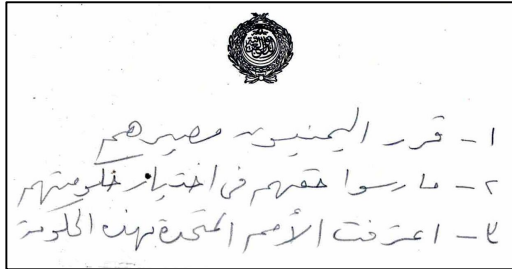 ١ - قرر اليمنيون مصيرهم
٢ - مارسوا حقهم فى اختيار حكومتهم
٣ - اعترفت الأمم المتحدة بهذه الحكومة